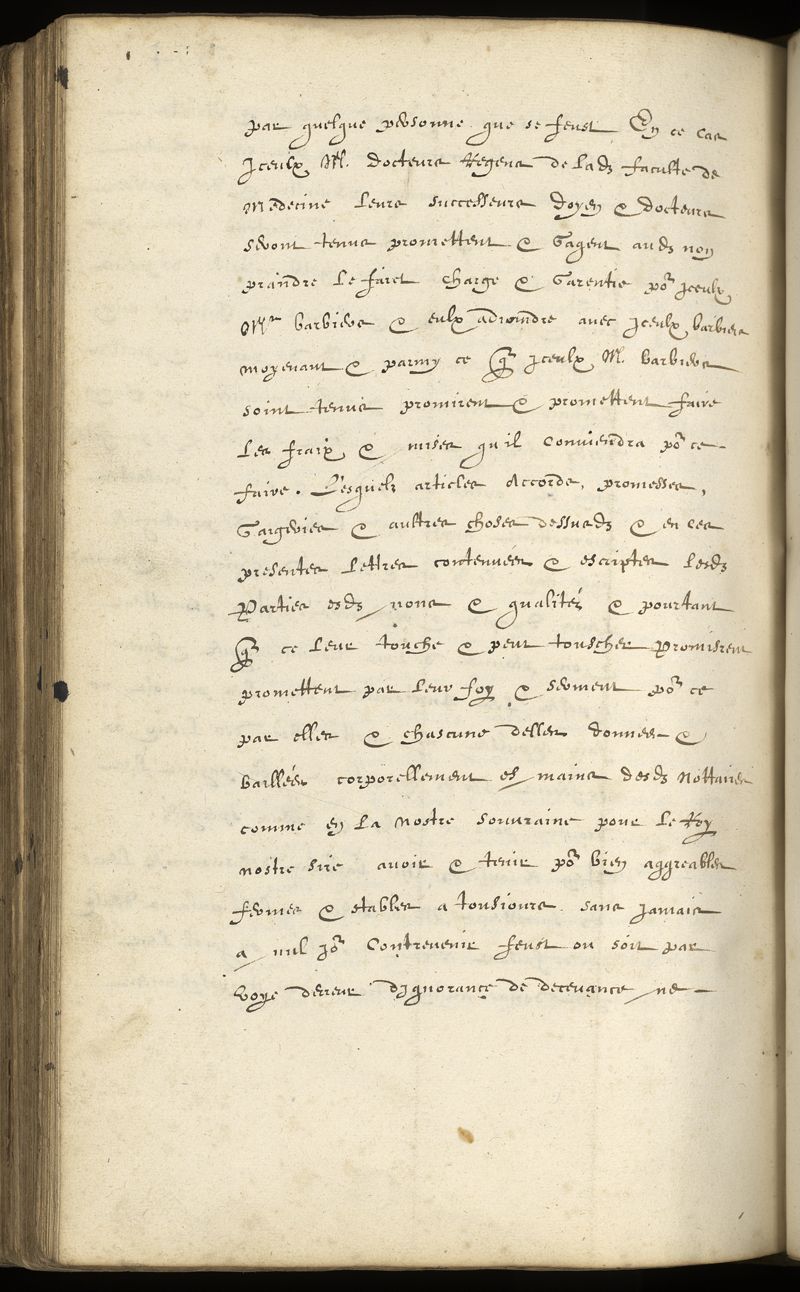 par quelque personne que se feust En ce cas
Iceulx M. docteurs Regens de Lad. faculte de
Medecine leurs successeurs doyen & docteurs
seront tenus promettent & Gagent ausd. non
prandre le faict charge & Garentie po.r Iceulx
M.rs barbiers & eulx adioindre avec Iceulx barbiers
moyenant & parmy ce q. Iceulx M. barbiers
soint tenus promirent & promettent faire
Les fraix & mises qu il conviendra po.r ce
faire. Lesquelz articles Accords, promesses,
& aultres choses dessusd. & en ces
presentes Lettres contenues & escriptes Lesd.
Parties esd. noms & qualités & pourtant
q. ce leur touche & peut touscher Promisrent
promettent par leur foy & serment po.r ce
par elles & chascune delles donnees &
baillées corporellement es mains desd. Nottaires
comme en la nostre souvraine pour le Roy
nostre sire avoir & tenir po.r bien aggreables
fermes & stables a tousiours sans jamais
a nul jo.r Contrevenir feust ou soit par
voye derreur d'Ignorance de decevance ne